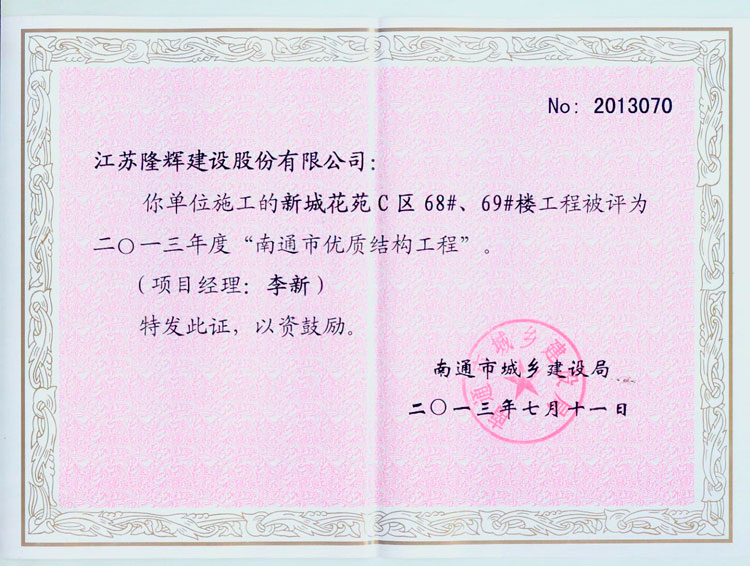 No: 2013070
江苏隆辉建设股份有限公司：
你单位施工的新城花苑C区68#、69#楼工程被评为
二〇一三年度“南通市优质结构工程”。
（项目经理：李新）
特发此证，以资鼓励。
南通市城乡建设局
二〇一三年七月十一日
南通市城乡建设局